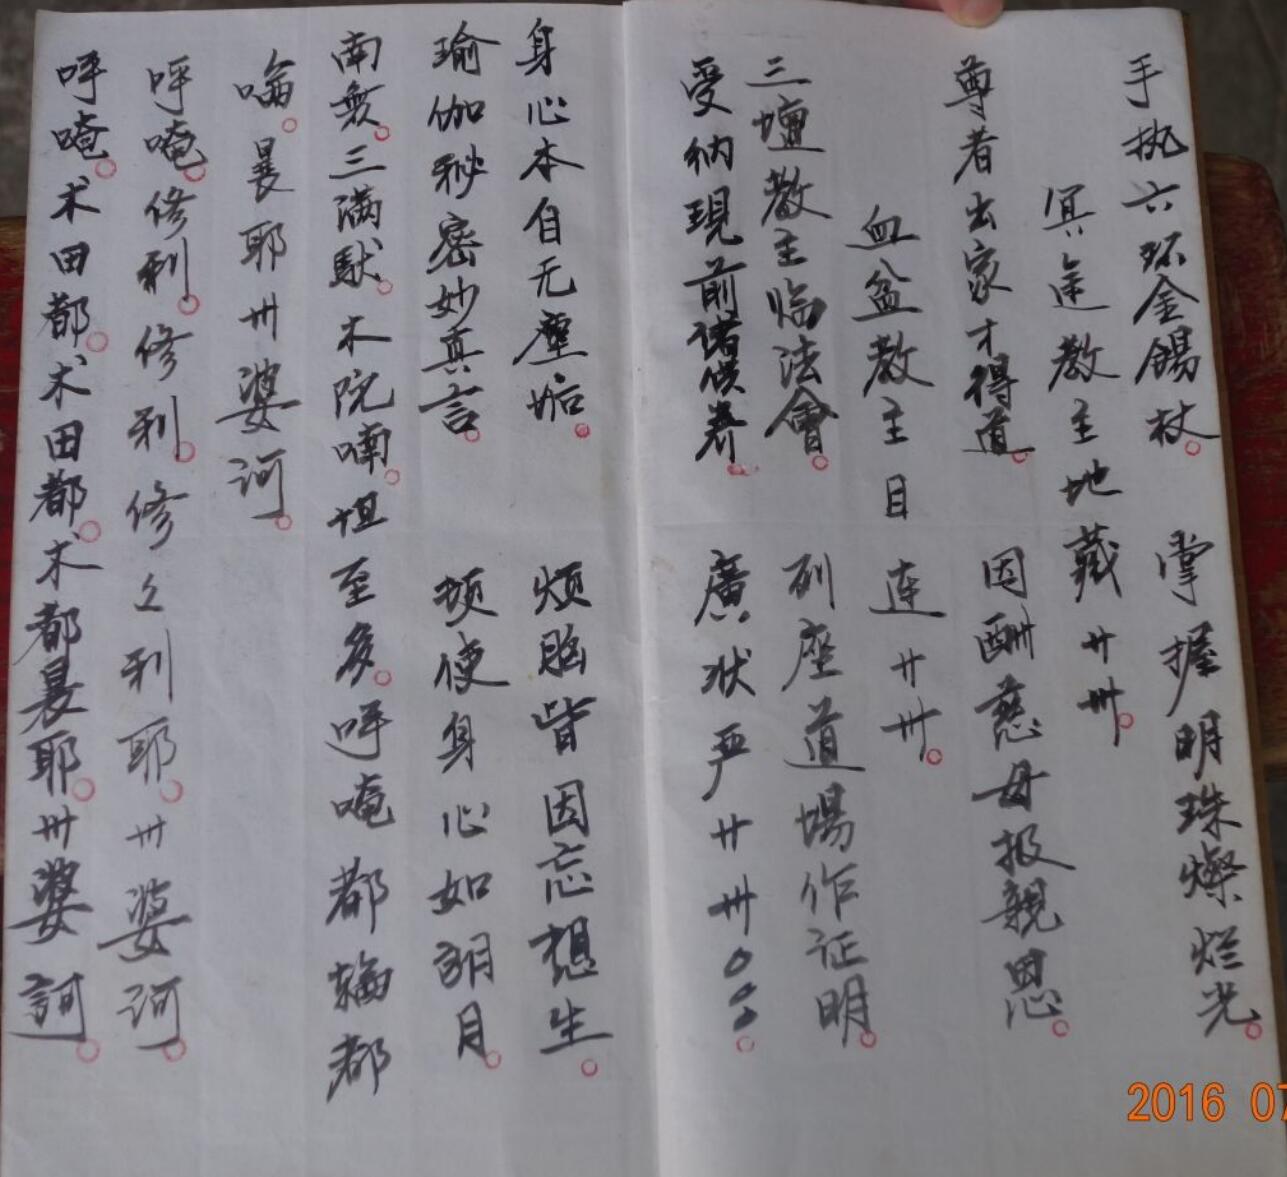 手执六环金锡杖。掌握明珠燦烂光。
冥途教主地藏廾卅。
尊者出家才得道。因酬慈母报親恩。
血盆教主目连廾卅。
三壇教主临法會。列座道場作证明。
受纳現前诸供养。廣状严廾卅
身心本自无塵垢。烦脑皆因忘想生。
瑜伽秘密妙真言。顿使身心如朗月。
南無。三满馱。木院喃。怛至多。呼唵都輪都
喻。曩耶卅婆诃。
呼唵。修利。修利。修々利耶。卅婆诃。
呼唵。术田都。术田都。术都曩耶。卅婆訶。
2016 07